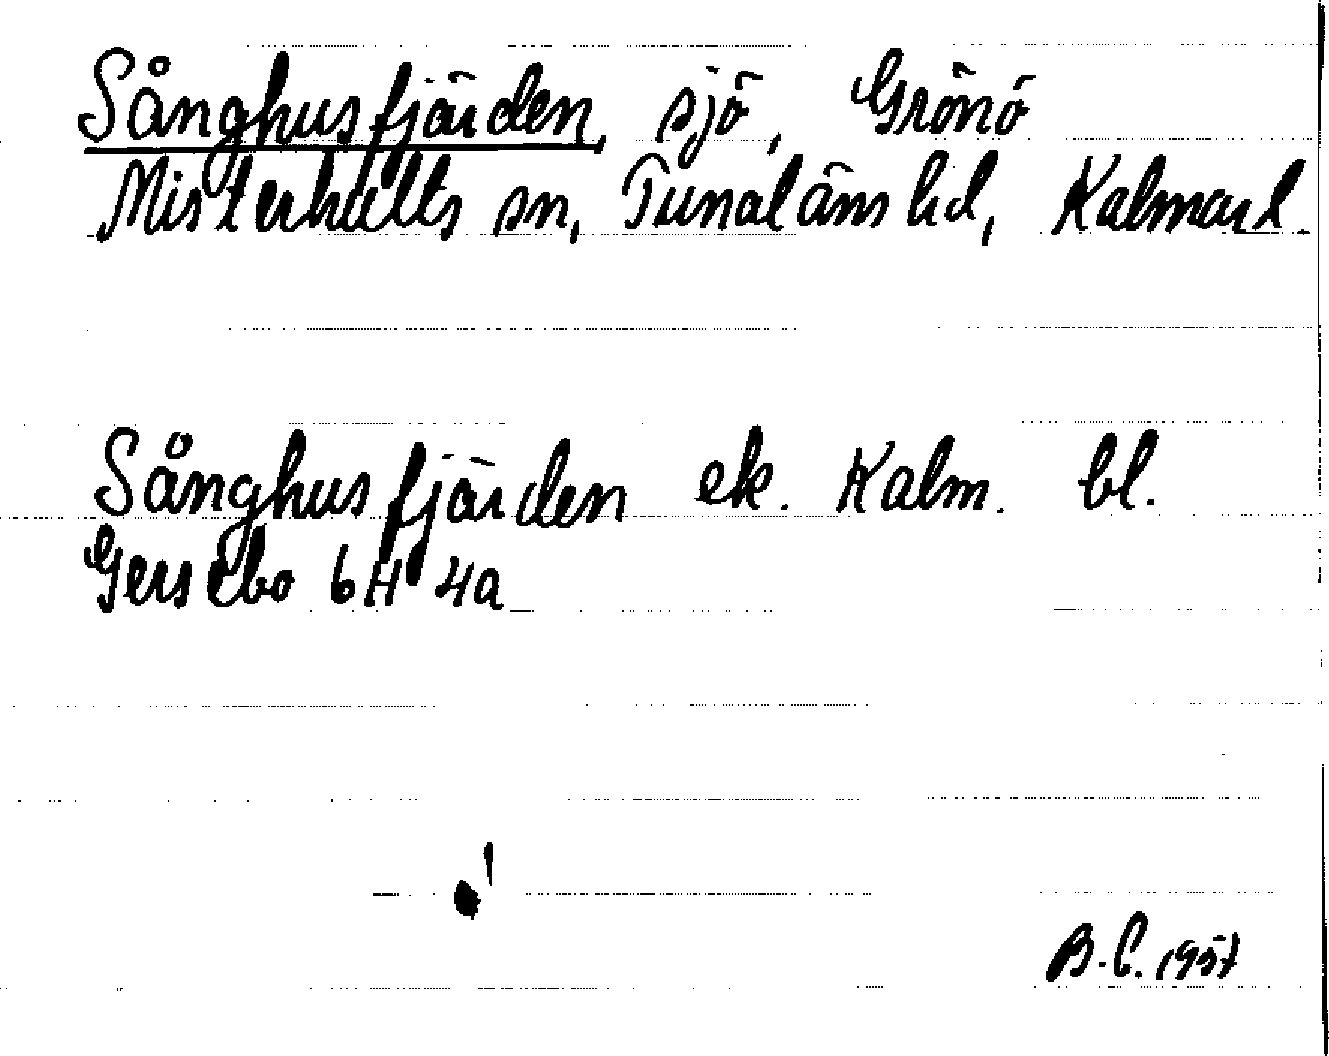 Sånghusfjärden, sjö, Grönö
Misterhults sn, Tunaläns hd, Kalmar l.
Sånghusfjärden ek. Kalm. bl.
Gersebo 6H 4a
B.C. 1957